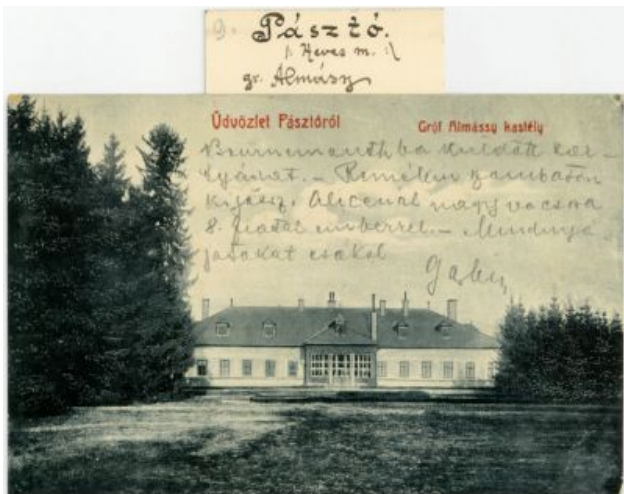 9. Pásztó.
/: Heves m. :/
gr. Almásy
Üdvözlet Pásztóról
Gróf Almássy kastély
Bournemouthba küldött kár-
tyámat. - Remélem szombaton
kijösz. Alicenal nagy vacsora
8. fiatal emberrel. - Mindnyá-
jatokat csókol
Gaby